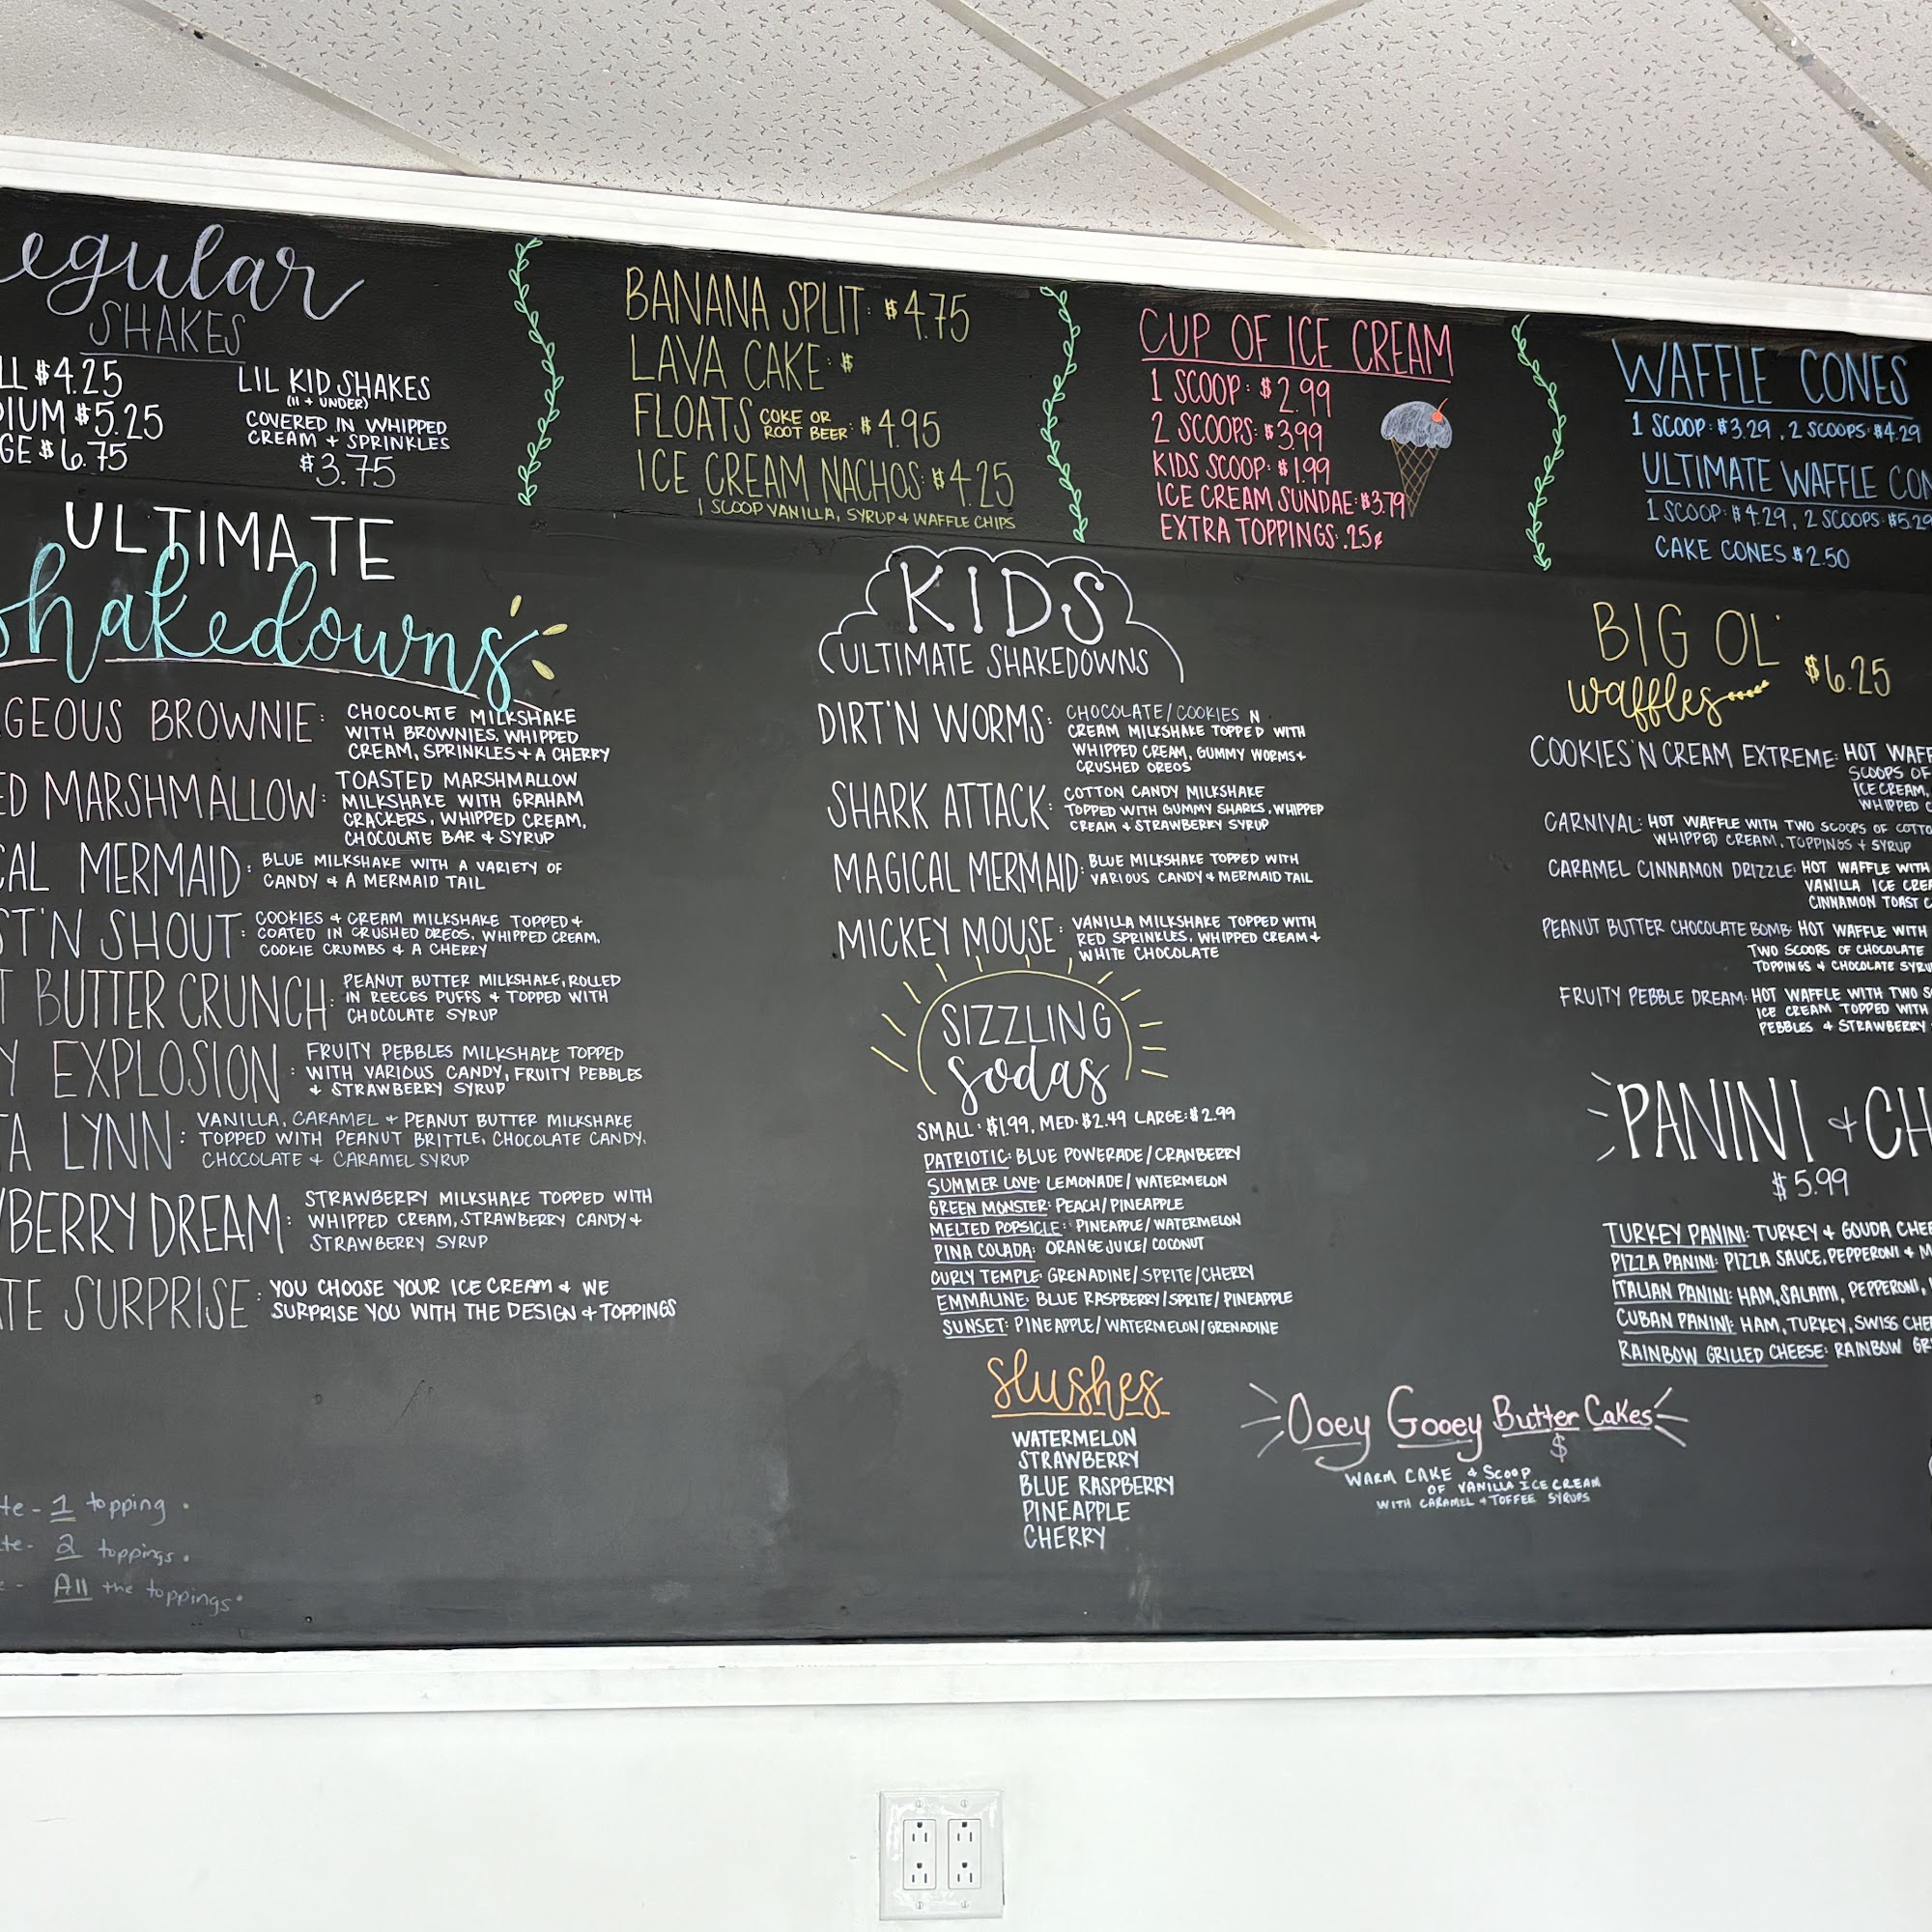 egular
SHAKES
LL $4.25
DIUM $5.25
GE $6.75
LIL KID SHAKES
(11 + UNDER)
COVERED IN WHIPPED
CREAM + SPRINKLES
$3.75
BANANA SPLIT: $4.75
LAVA CAKE: $
FLOATS COKE OR
ROOT BEER: $4.95
ICE CREAM NACHOS: $4.25
1 SCOOP VANILLA, SYRUP + WAFFLE CHIPS
CUP OF ICE CREAM
1 SCOOP: $2.99
2 SCOOPS: $3.99
KIDS SCOOP: $1.99
ICE CREAM SUNDAE: $3.79
EXTRA TOPPINGS: .25¢
WAFFLE CONES
1 SCOOP: $3.29, 2 SCOOPS: $4.29
ULTIMATE WAFFLE CON
1 SCOOP: $4.29, 2 SCOOPS: $5.29
CAKE CONES $2.50
ULTIMATE
Shakedowns
GEOUS BROWNIE: CHOCOLATE MILKSHAKE
WITH BROWNIES, WHIPPED
CREAM, SPRINKLES + A CHERRY
ED MARSHMALLOW: TOASTED MARSHMALLOW
MILKSHAKE WITH GRAHAM
CRACKERS, WHIPPED CREAM,
CHOCOLATE BAR & SYRUP
CAL MERMAID: BLUE MILKSHAKE WITH A VARIETY OF
CANDY & A MERMAID TAIL
ST'N SHOUT: COOKIES + CREAM MILKSHAKE TOPPED +
COATED IN CRUSHED OREOS, WHIPPED CREAM,
COOKIE CRUMBS & A CHERRY
T BUTTER CRUNCH: PEANUT BUTTER MILKSHAKE, ROLLED
IN REECES PUFFS + TOPPED WITH
CHOCOLATE SYRUP
Y EXPLOSION: FRUITY PEBBLES MILKSHAKE TOPPED
WITH VARIOUS CANDY, FRUITY PEBBLES
+ STRAWBERRY SYRUP
TA LYNN: VANILLA, CARAMEL + PEANUT BUTTER MILKSHAKE
TOPPED WITH PEANUT BRITTLE, CHOCOLATE CANDY,
CHOCOLATE + CARAMEL SYRUP
WBERRY DREAM: STRAWBERRY MILKSHAKE TOPPED WITH
WHIPPED CREAM, STRAWBERRY CANDY +
STRAWBERRY SYRUP
TE SURPRISE: YOU CHOOSE YOUR ICE CREAM & WE
SURPRISE YOU WITH THE DESIGN & TOPPINGS
te - 1 topping.
te - 2 toppings.
e - All the toppings.
KIDS
ULTIMATE SHAKEDOWNS
DIRT'N WORMS: CHOCOLATE/COOKIES N
CREAM MILKSHAKE TOPPED WITH
WHIPPED CREAM, GUMMY WORMS +
CRUSHED OREOS
SHARK ATTACK: COTTON CANDY MILKSHAKE
TOPPED WITH GUMMY SHARKS, WHIPPED
CREAM & STRAWBERRY SYRUP
MAGICAL MERMAID: BLUE MILKSHAKE TOPPED WITH
VARIOUS CANDY & MERMAID TAIL
MICKEY MOUSE: VANILLA MILKSHAKE TOPPED WITH
RED SPRINKLES, WHIPPED CREAM +
WHITE CHOCOLATE
SIZZLING
sodas
SMALL: $1.99, MED: $2.49 LARGE: $2.99
PATRIOTIC: BLUE POWERADE/CRANBERRY
SUMMER LOVE: LEMONADE/WATERMELON
GREEN MONSTER: PEACH/PINEAPPLE
MELTED POPSICLE: PINEAPPLE/WATERMELON
PINA COLADA: ORANGE JUICE/COCONUT
CURLY TEMPLE: GRENADINE/SPRITE/CHERRY
EMMALINE: BLUE RASPBERRY/SPRITE/PINEAPPLE
SUNSET: PINEAPPLE/WATERMELON/GRENADINE
slushes
WATERMELON
STRAWBERRY
BLUE RASPBERRY
PINEAPPLE
CHERRY
Ooey Gooey Butter Cakes
$
WARM CAKE & SCOOP
OF VANILLA ICE CREAM
WITH CARAMEL + TOFFEE SYRUPS
BIG OL'
waffles $6.25
COOKIES'N CREAM EXTREME: HOT WAFF
SCOOPS OF
ICE CREAM,
WHIPPED C
CARNIVAL: HOT WAFFLE WITH TWO SCOOPS OF COTTO
WHIPPED CREAM, TOPPINGS + SYRUP
CARAMEL CINNAMON DRIZZLE: HOT WAFFLE WITH
VANILLA ICE CREA
CINNAMON TOAST C
PEANUT BUTTER CHOCOLATE BOMB: HOT WAFFLE WITH
TWO SCOOPS OF CHOCOLATE
TOPPINGS & CHOCOLATE SYRU
FRUITY PEBBLE DREAM: HOT WAFFLE WITH TWO S
ICE CREAM TOPPED WITH
PEBBLES & STRAWBERRY
PANINI + CH
$5.99
TURKEY PANINI: TURKEY & GOUDA CHEE
PIZZA PANINI: PIZZA SAUCE, PEPPERONI & M
ITALIAN PANINI: HAM, SALAMI, PEPPERONI,
CUBAN PANINI: HAM, TURKEY, SWISS CHE
RAINBOW GRILLED CHEESE: RAINBOW GR